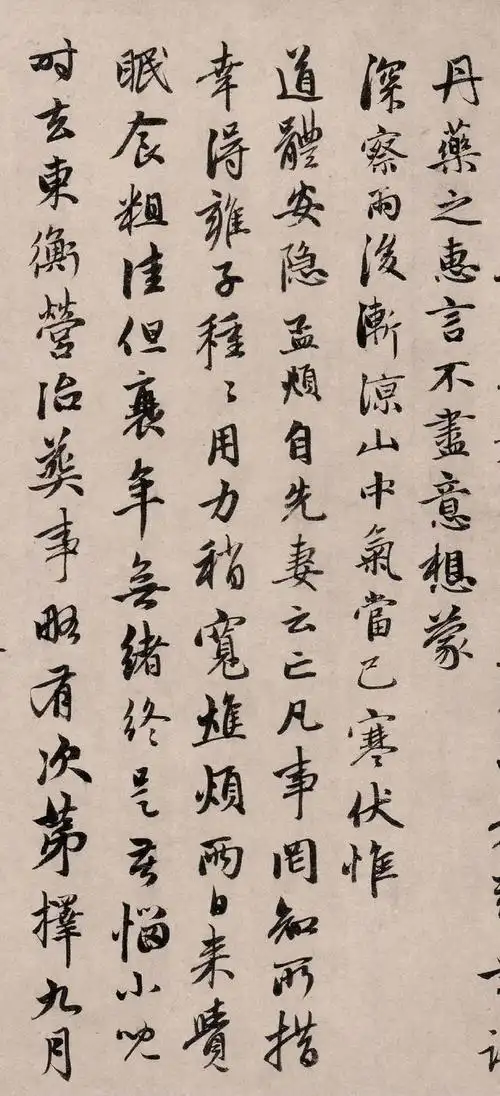 丹藥之惠言不盡意想蒙
深察雨後漸涼山中氣當已寒伏惟
道體安隱孟頫自先妻云亡凡事罔知所措
幸得雍子種〻用力稍寬雄煩兩日來覺
眠食粗佳但衰年無緒終是苦惱小兒
时去東衡營治葬事略有次第擇九月